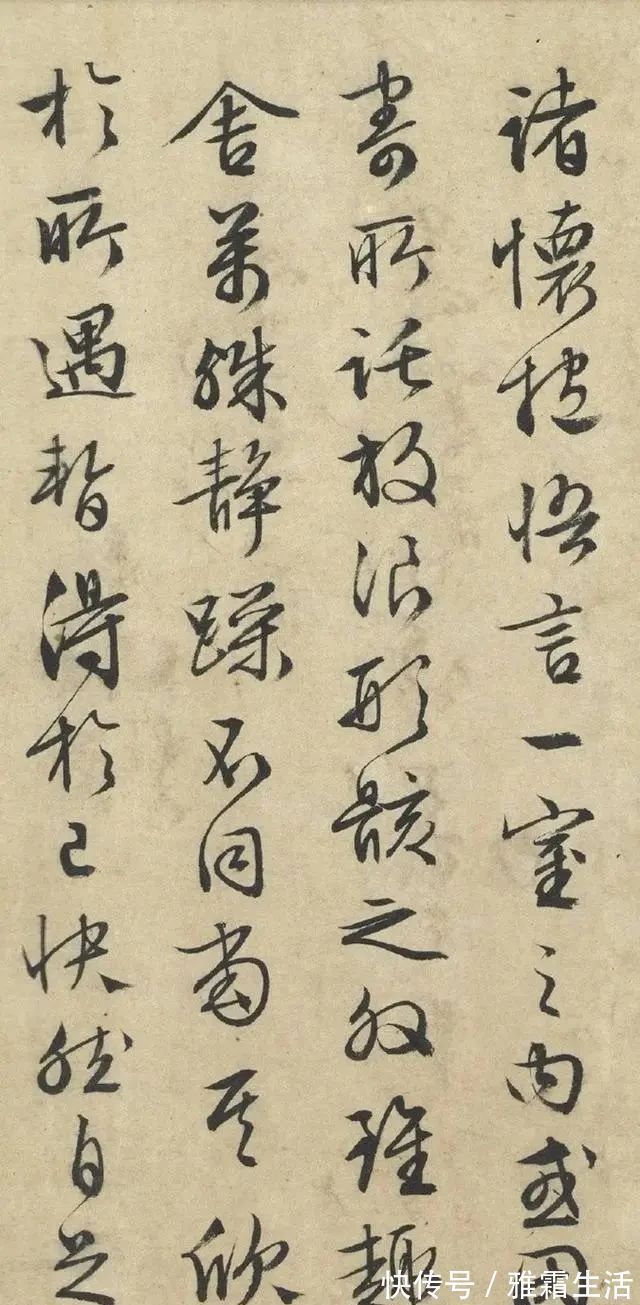 諸懷抱悟言一室之內或因
寄所託放浪形骸之外雖趣
舍萬殊靜躁不同當其欣
於所遇暫得於己快然自足
快传号/雅霜生活